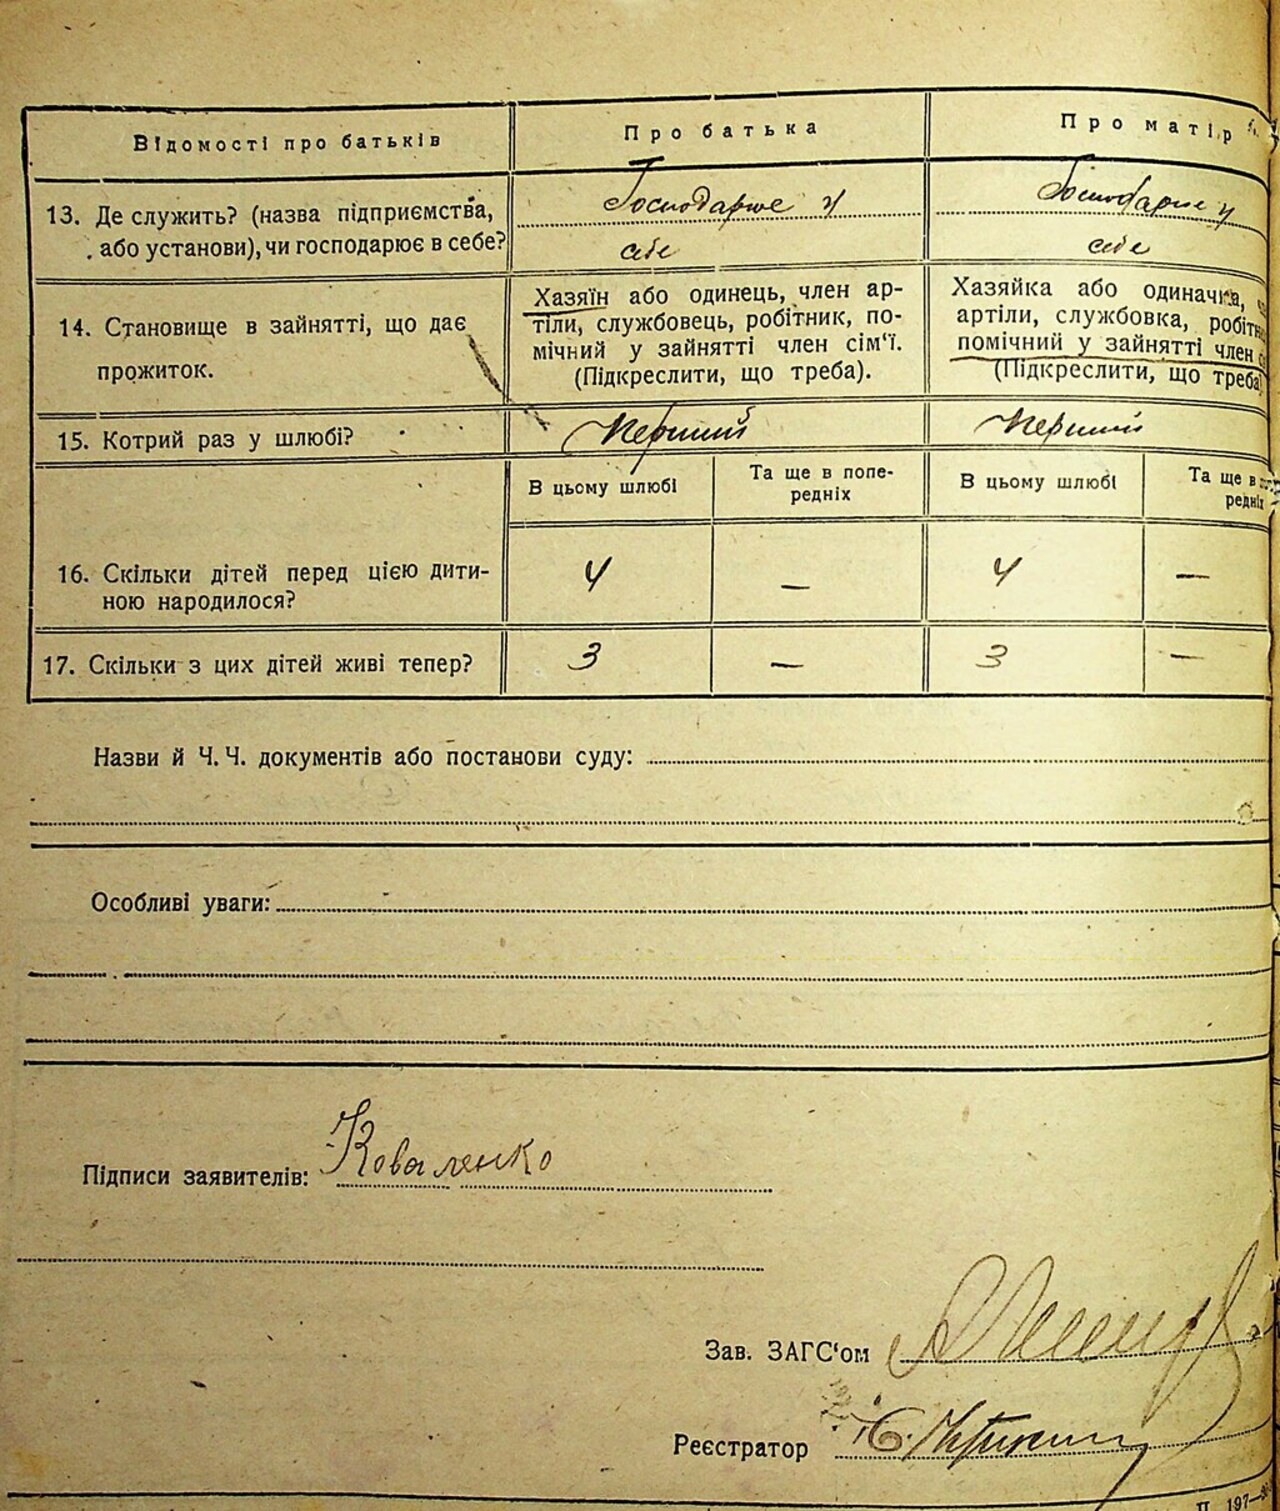 Відомості про батьків
Про батька
Про матір
13. Де служить? (назва підприємства,
або установи), чи господарює в себе?
Господарює у
себе
Господарює у
себе
14. Становище в зайнятті, що дає
прожиток.
Хазяїн або одинець, член ар-
тіли, службовець, робітник, по-
мічний у зайнятті член сім‘ї.
(Підкреслити, що треба).
Хазяйка або одиначка,
артіли, службовка, робітн
помічний у зайнятті член
(Підкреслити, що треба)
15. Котрий раз у шлюбі?
Перший
Перший
В цьому шлюбі
Та ще в попе-
редніх
В цьому шлюбі
Та ще в
редніх
16. Скільки дітей перед цією дити-
ною народилося?
4
—
4
—
17. Скільки з цих дітей живі тепер?
3
—
3
—
Назви й Ч. Ч. документів або постанови суду:
Особливі уваги:
Підписи заявителів: Коваленко
Зав. ЗАГС‘ом
Реєстратор
П. 197—